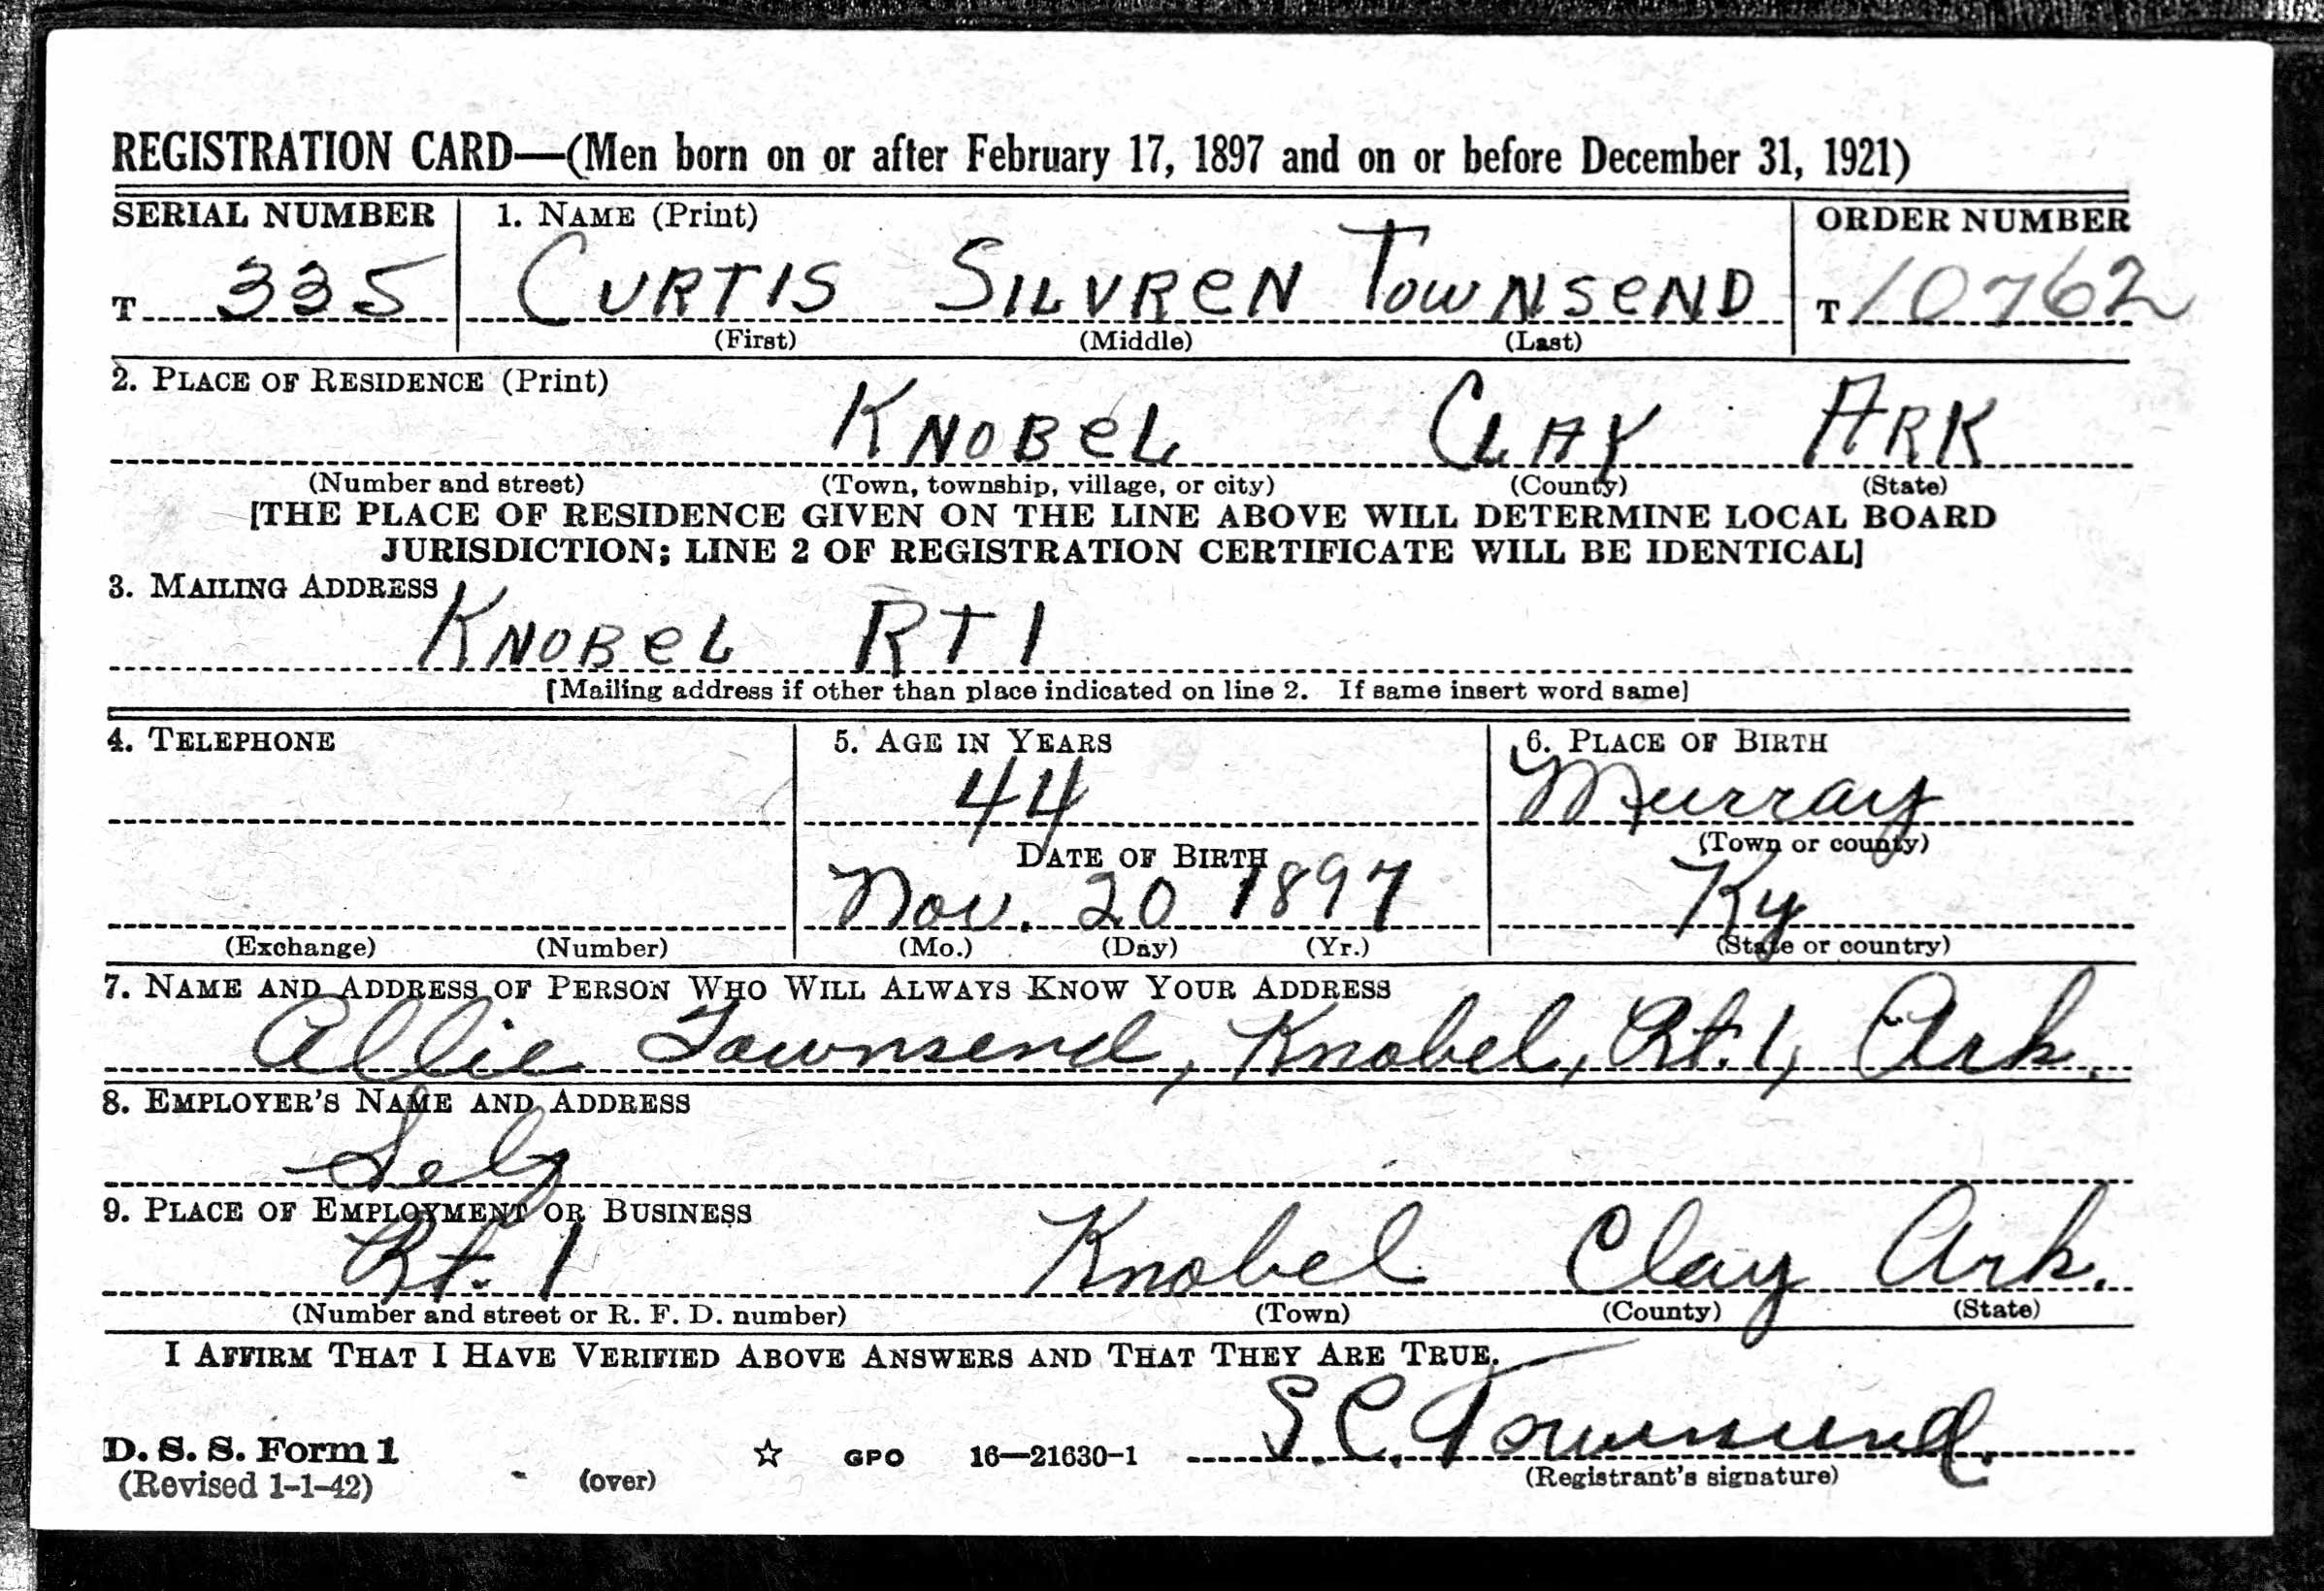 REGISTRATION CARD—(Men born on or after February 17, 1897 and on or before December 31, 1921)
SERIAL NUMBER 1. NAME (Print) ORDER NUMBER
T 335 CURTIS SILVREN TOWNSEND T 10762
(First) (Middle) (Last)
2. PLACE OF RESIDENCE (Print)
KNOBEL CLAY ARK
(Number and street) (Town, township, village, or city) (County) (State)
[THE PLACE OF RESIDENCE GIVEN ON THE LINE ABOVE WILL DETERMINE LOCAL BOARD
JURISDICTION; LINE 2 OF REGISTRATION CERTIFICATE WILL BE IDENTICAL]
3. MAILING ADDRESS
KNOBEL RT 1
[Mailing address if other than place indicated on line 2. If same insert word same]
4. TELEPHONE 5. AGE IN YEARS 6. PLACE OF BIRTH
44 Murray
DATE OF BIRTH (Town or county)
Nov. 20 1897 Ky
(Exchange) (Number) (Mo.) (Day) (Yr.) (State or country)
7. NAME AND ADDRESS OF PERSON WHO WILL ALWAYS KNOW YOUR ADDRESS
Allie Townsend, Knobel, Rt. 1, Ark.
8. EMPLOYER'S NAME AND ADDRESS
Self
9. PLACE OF EMPLOYMENT OR BUSINESS
Rt. 1 Knobel Clay Ark.
(Number and street or R. F. D. number) (Town) (County) (State)
I AFFIRM THAT I HAVE VERIFIED ABOVE ANSWERS AND THAT THEY ARE TRUE.
S.C. Townsend.
D. S. S. Form 1 ☆ GPO 16—21630-1
(Revised 1-1-42) (over) (Registrant's signature)